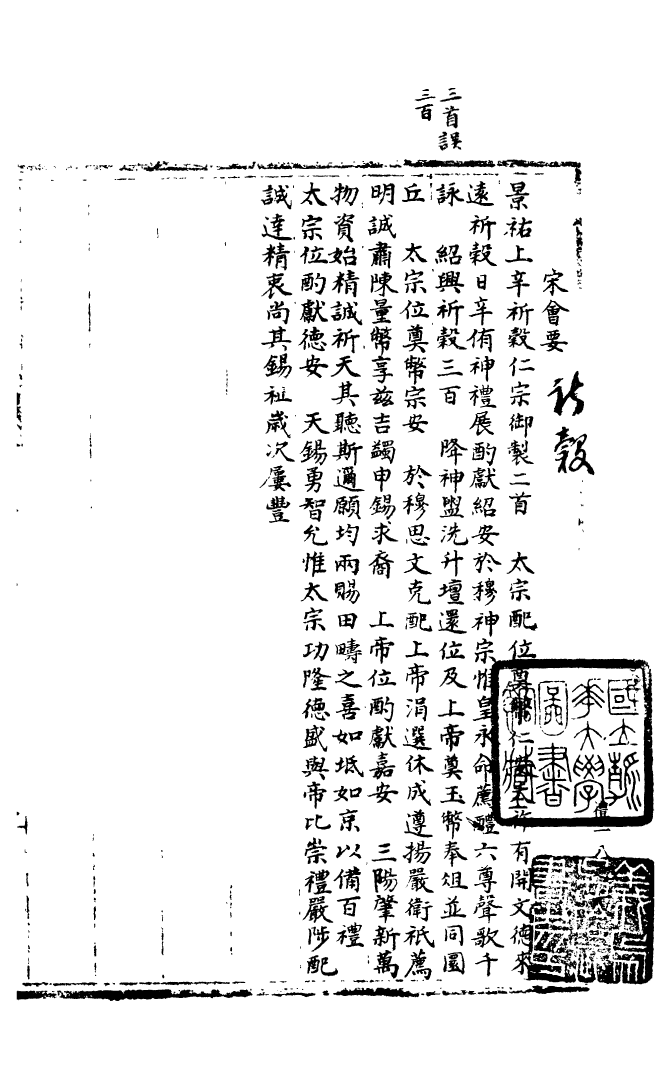 三首誤
三百
宋會要
祈穀
景祐上辛祈穀仁宗御製二首　太宗配位奠幣仁 有開文德來
遠祈穀日辛侑神禮展酌獻紹安於穆神宗惟皇永命薦醴六尊聲歌千
詠　紹興祈穀三百　降神盥洗升壇還位及上帝奠玉幣奉俎並同圜
丘　太宗位奠幣宗安　於穆思文克配上帝涓選休成遵揚嚴衛祇薦
明誠肅陳量幣享兹吉蠲申錫求裔　上帝位酌獻嘉安　三陽肇新萬
物資始精誠祈天其聽斯邇願均雨賜田疇之喜如坻如京以備百禮
太宗位酌獻德安　天錫勇智允惟太宗功隆德盛與帝比崇禮嚴陟配
誠達精衷尚其錫祉歲次屢豐
禮一八
國立清華大學圖書